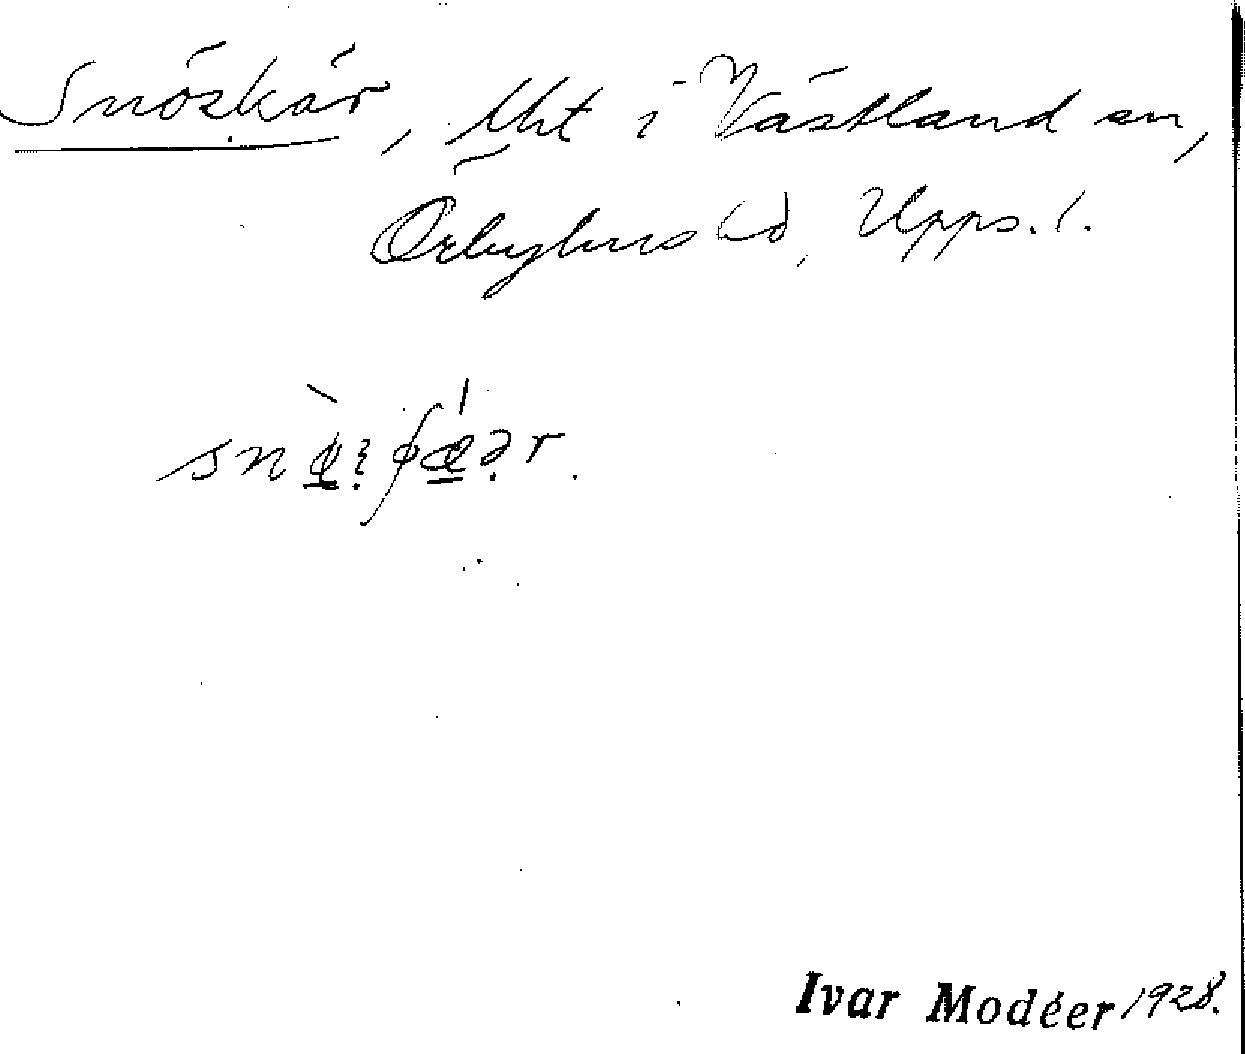 Snöskär, Uht i Västland sn,
Örbyhus hd, Upps. l.
Ivar Modéer 1928.